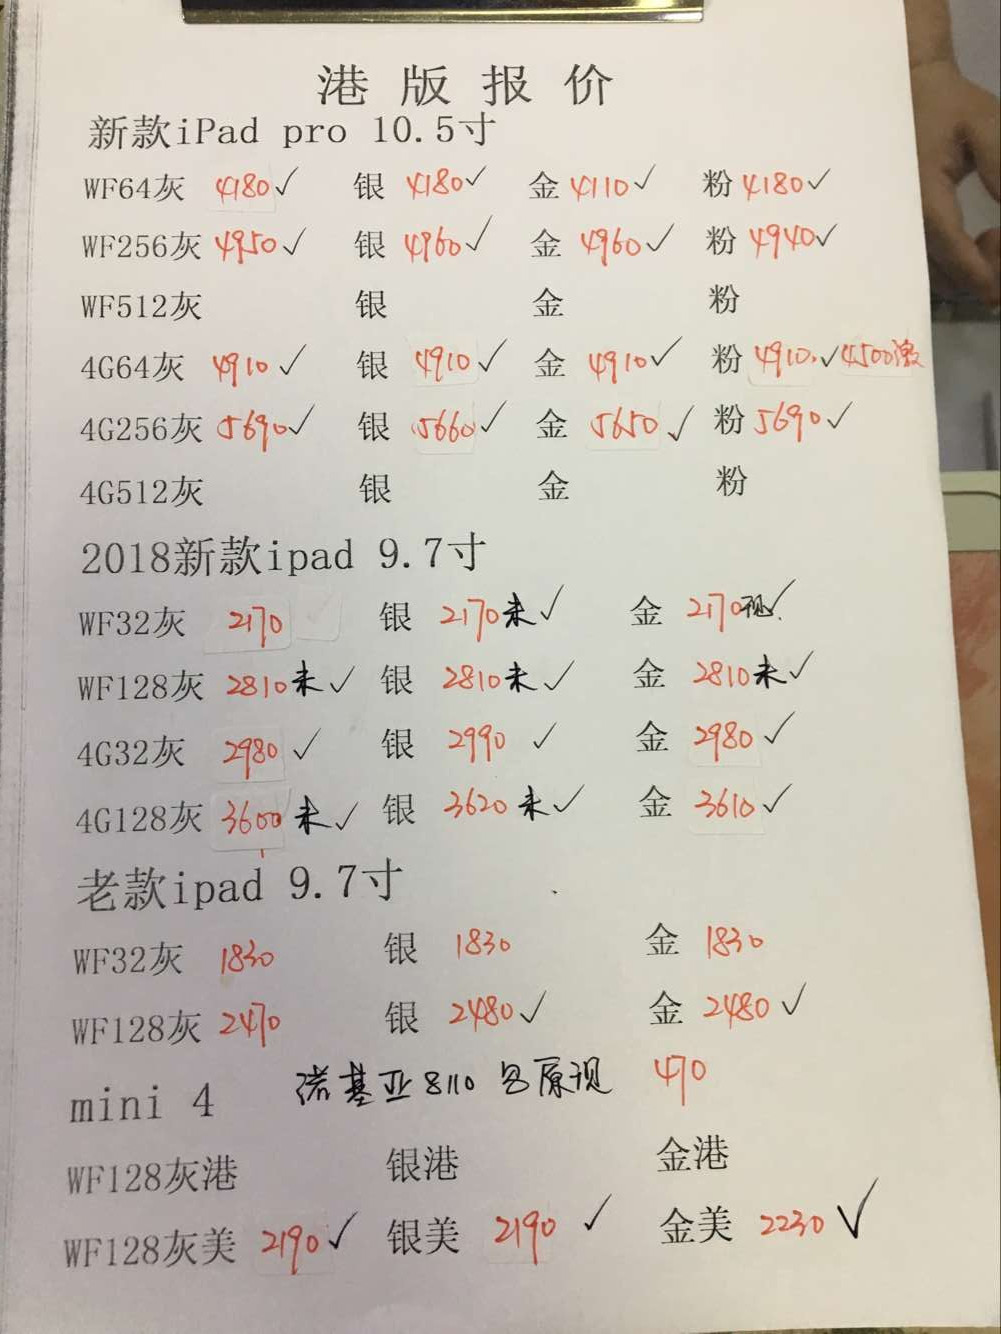 港版报价
新款iPad pro 10.5寸
WF64灰 4180✓ 银 4180✓ 金 4110✓ 粉 4180✓
WF256灰 4950✓ 银 4960✓ 金 4960✓ 粉 4940✓
WF512灰 银 金 粉
4G64灰 4910✓ 银 4910✓ 金 4910✓ 粉 4910✓ 4500激
4G256灰 5690✓ 银 5660✓ 金 5650✓ 粉 5690✓
4G512灰 银 金 粉
2018新款ipad 9.7寸
WF32灰 2170 银 2170未✓ 金 2170现✓
WF128灰 2810未✓ 银 2810未✓ 金 2810未✓
4G32灰 2980✓ 银 2990✓ 金 2980✓
4G128灰 3600未✓ 银 3620未✓ 金 3610✓
老款ipad 9.7寸
WF32灰 1830 银 1830 金 1830
WF128灰 2470 银 2480✓ 金 2480✓
mini 4 诺基亚8110 原现 470
WF128灰港 银港 金港
WF128灰美 2190✓ 银美 2190✓ 金美 2230✓